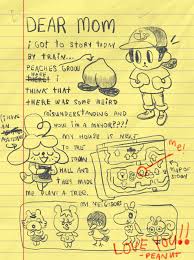 DEAR MOM
I GOT TO STORY TODAY
BY TRAIN...
PEACHES GROW
HERE! I
THINK THAT
THERE WAS SOME WEIRD
MISUNDERSTANDING AND
NOW I'M A MAYOR???!
(I HAVE
AN
MY HOUSE IS NEXT
TO THE
TOWN
HALL AND THEY
MADE
ME PLANT A TREE.
ME!
MAP OF
STORY
MY NEIGHBORS
LOVE YOU!!
-PEANUT